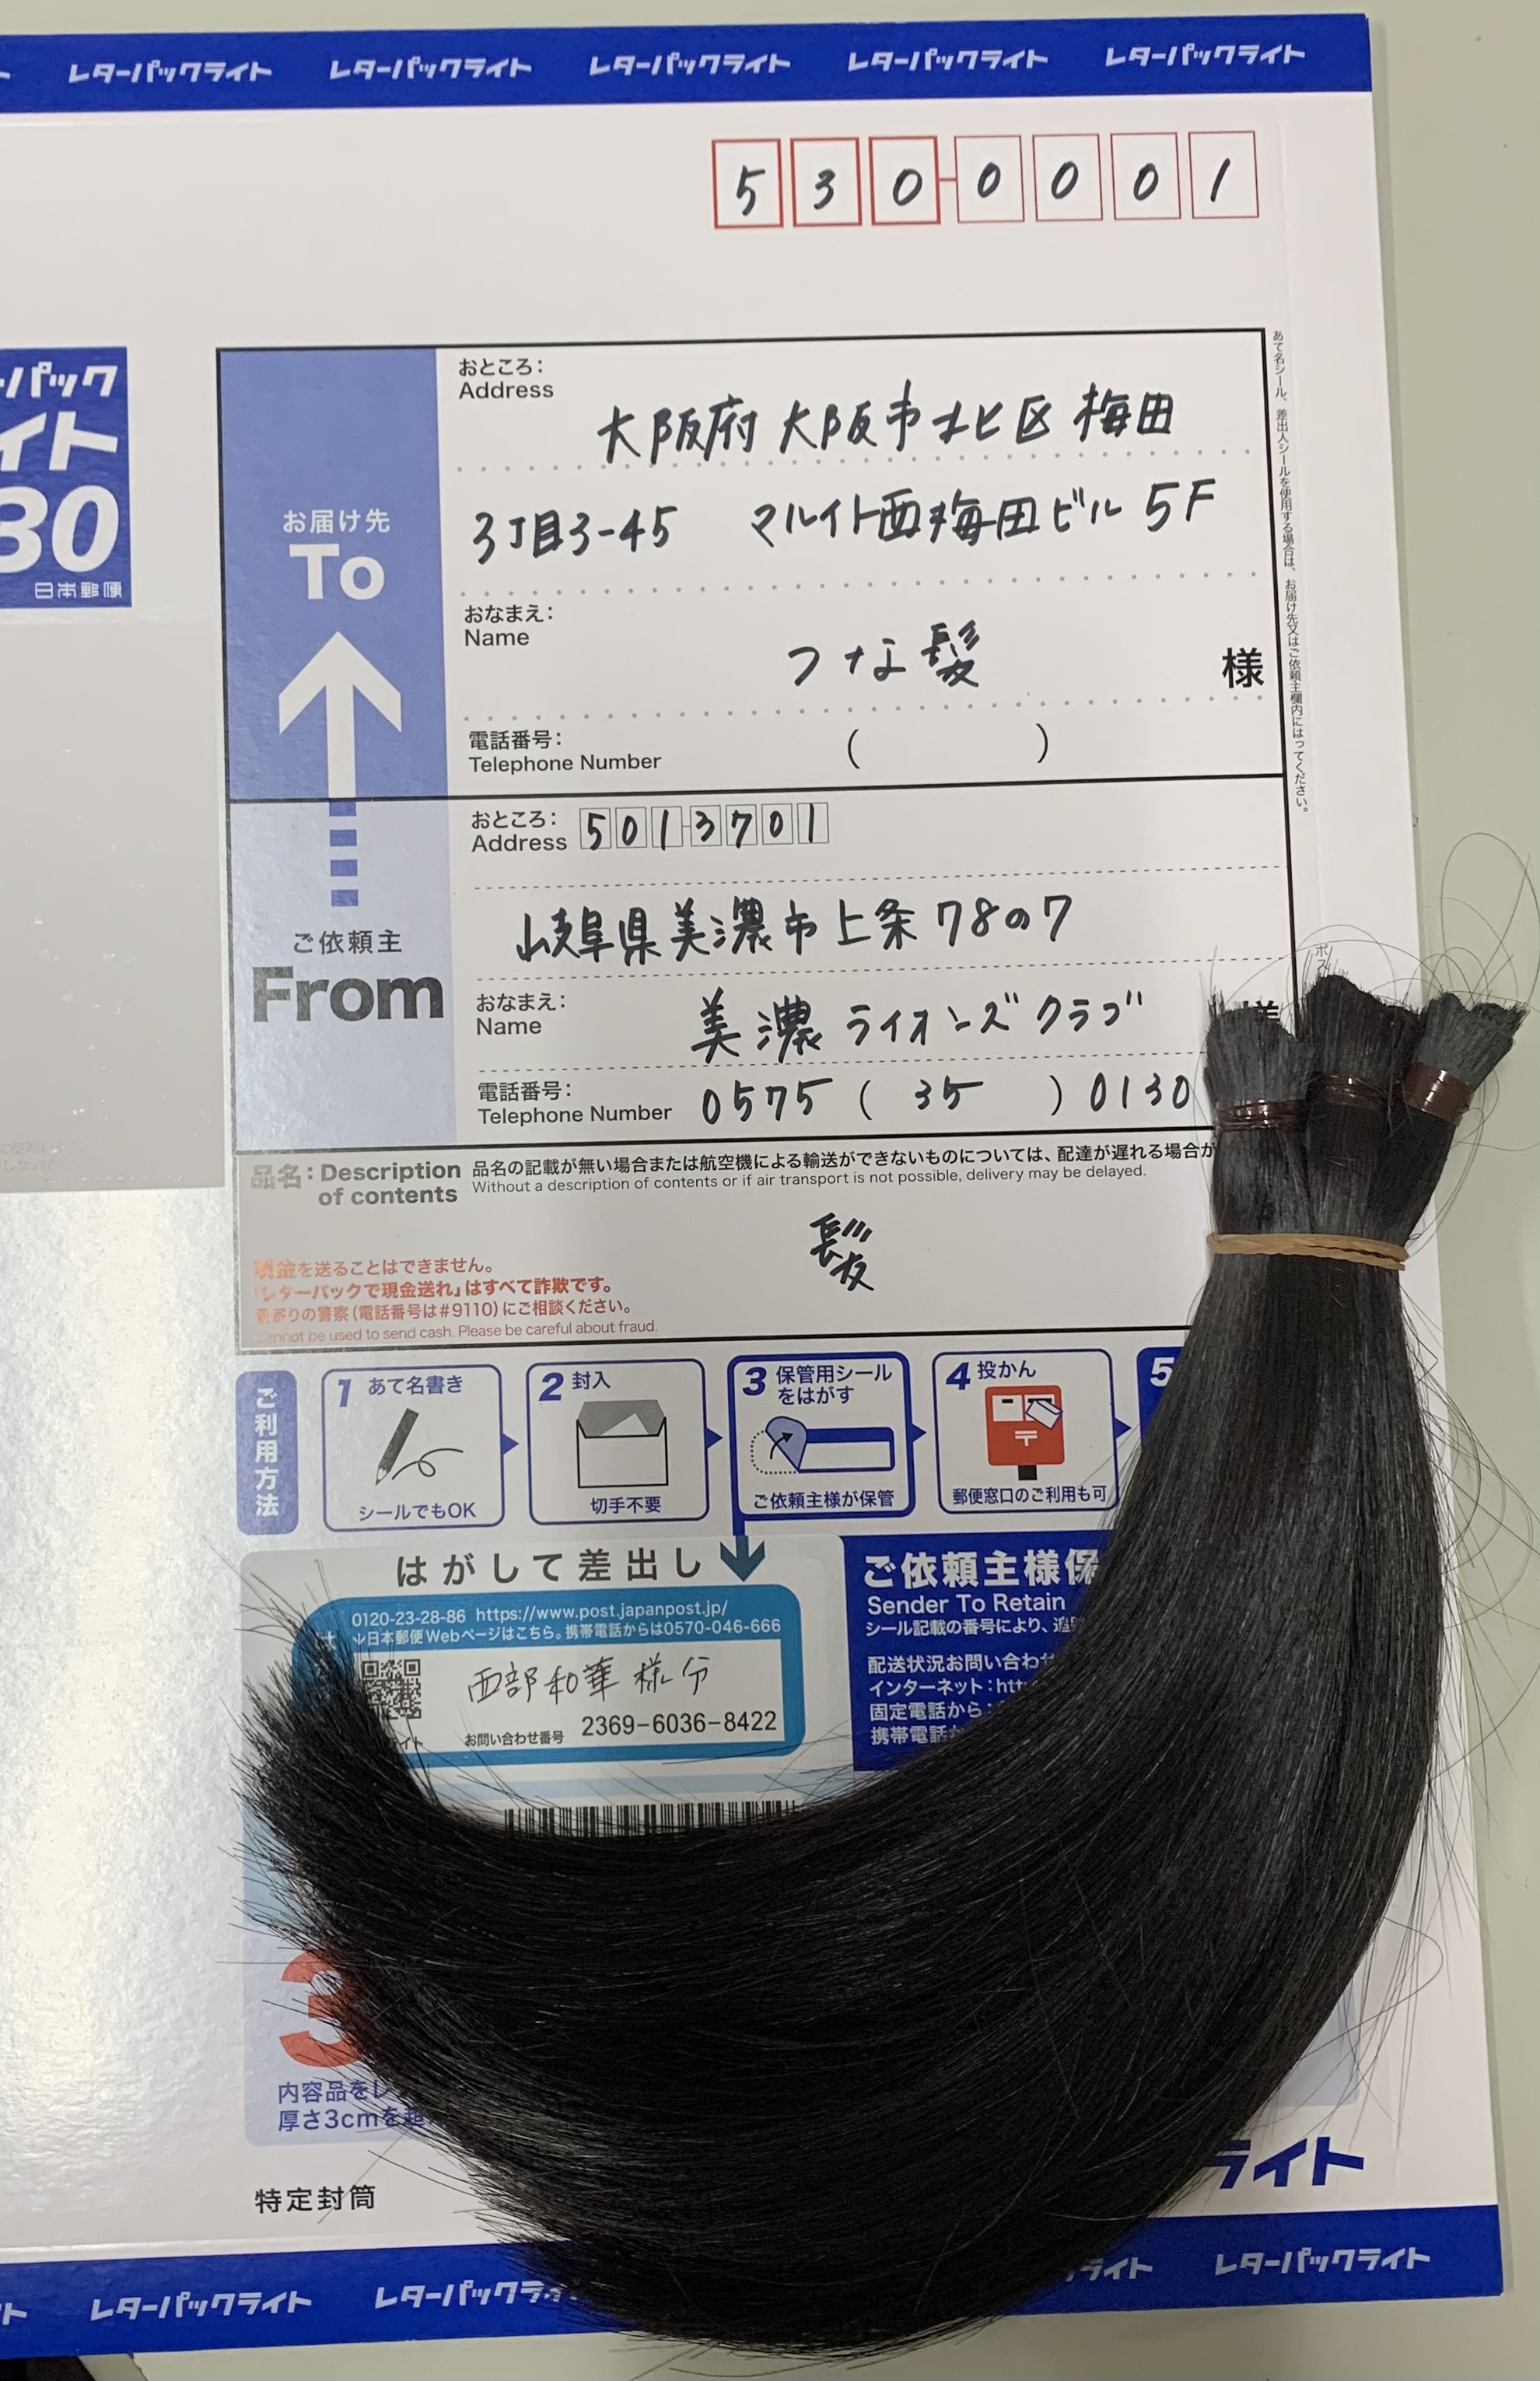 レターパックライト レターパックライト レターパックライト レターパックライト レターパックライト
530-0001
パック
イト
30
日本郵便
お届け先
To
おところ:
Address
大阪府大阪市北区梅田
3丁目3-45 マルイト西梅田ビル5F
おなまえ:
Name
つな髪
様
電話番号:
Telephone Number
( )
あて名シール、差出人シールを使用する場合は、お届け先又はご依頼主欄内にはってください。
ご依頼主
From
おところ:
Address
501-3701
岐阜県美濃市上条78の7
おなまえ:
Name
美濃ライオンズクラブ
電話番号:
Telephone Number
0575 ( 35 ) 0130
品名:Description
of contents
品名の記載が無い場合または航空機による輸送ができないものについては、配達が遅れる場合が
Without a description of contents or if air transport is not possible, delivery may be delayed.
髪
現金を送ることはできません。
「レターパックで現金送れ」はすべて詐欺です。
最寄りの警察(電話番号は#9110)にご相談ください。
Cannot be used to send cash. Please be careful about fraud.
ご利用方法
1 あて名書き
シールでもOK
2 封入
切手不要
3 保管用シール
をはがす
ご依頼主様が保管
4 投かん
郵便窓口のご利用も可
5
はがして差出し
0120-23-28-86 https://www.post.japanpost.jp/
↓日本郵便Webページはこちら。携帯電話からは0570-046-666
西部和華様分
お問い合わせ番号 2369-6036-8422
ご依頼主様保
Sender To Retain
シール記載の番号により、追
配送状況お問い合わせ
インターネット:htt
固定電話から:
携帯電話か
3
内容品をレ
厚さ3cmを超
ライト
特定封筒
レターパックライト レターパックライト レターパックライト